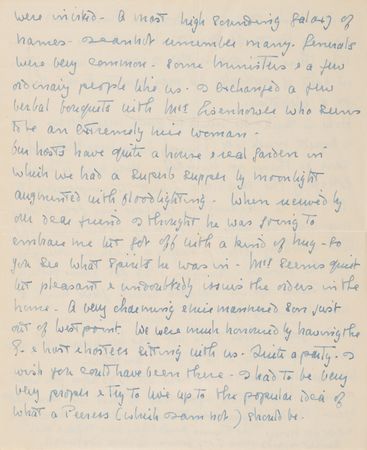 were invited - A most high sounding Galaxy of
names - I cannot remember many. Generals
were very common - some ministers & a few
ordinary people like us. I exchanged a few
verbal bouquets with Mrs Eisenhower who seems
to be an extremely nice woman -
Our hosts have quite a house & real garden in
which we had a superb supper by moonlight
augmented with floodlighting - When received by
our dear friend I thought he was going to
embrace me but got off with a kind of hug - so
you see what spirits he was in - Mrs seems quiet
but pleasant & undoubtedly issues the orders in the
home - A very charming & nice mannered son just
out of West point. We were much honoured by having the
G. & host & hostess sitting with us. Quite a party - I
wish you could have been there - I had to be very
very proper & try to live up to the popular idea of
what a Peeress (which I am not) should be.